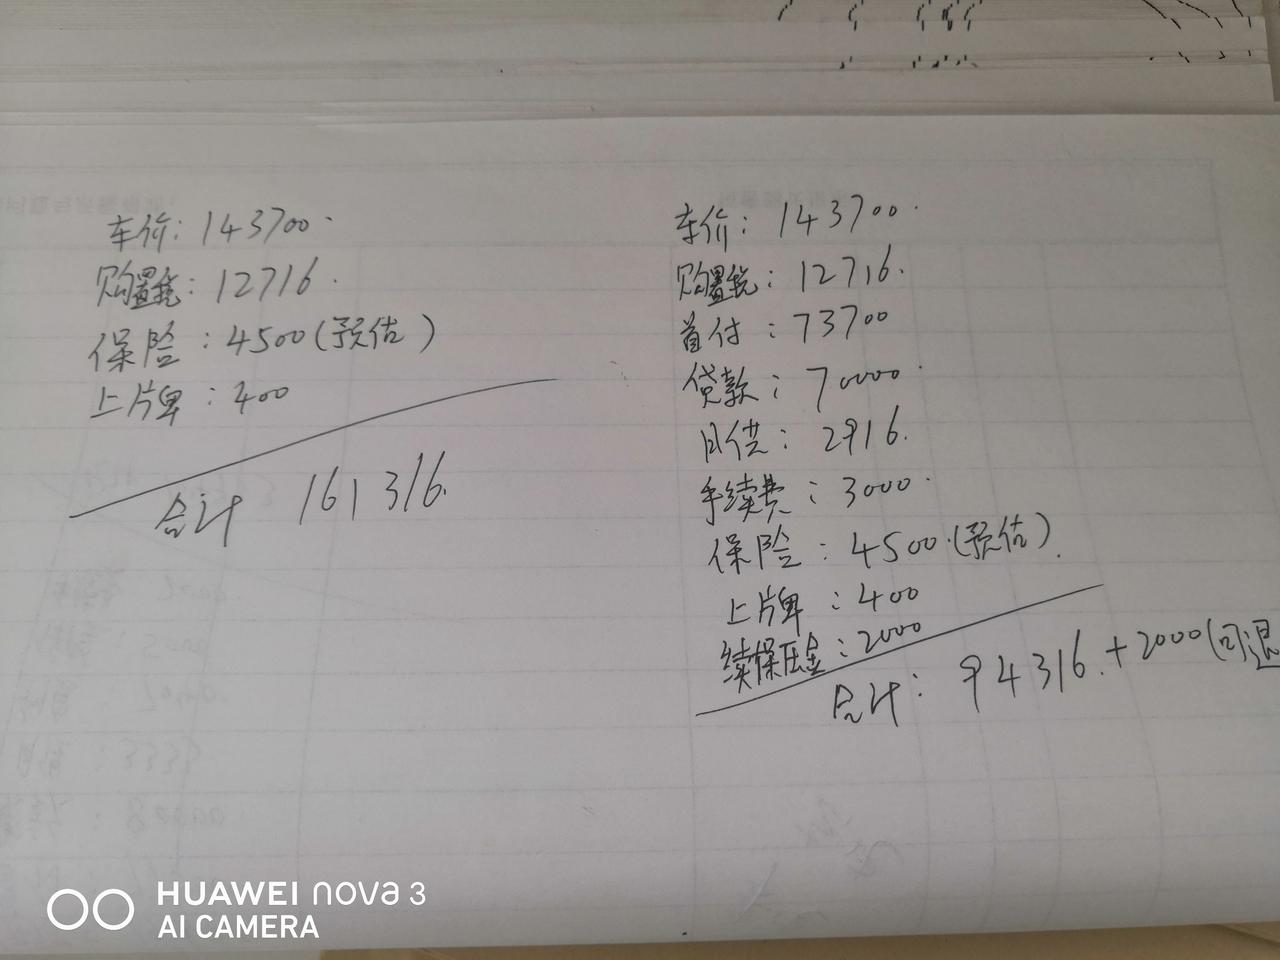 车价: 143700.
购置税: 12716.
保险: 4500(预估)
上牌: 400
合计 161316.
车价: 143700.
购置税: 12716.
首付: 73700
贷款: 70000.
月供: 2916.
手续费: 3000.
保险: 4500.(预估).
上牌: 400
续保压金: 2000
合计: 94316.+2000(可退
HUAWEI nova 3
AI CAMERA